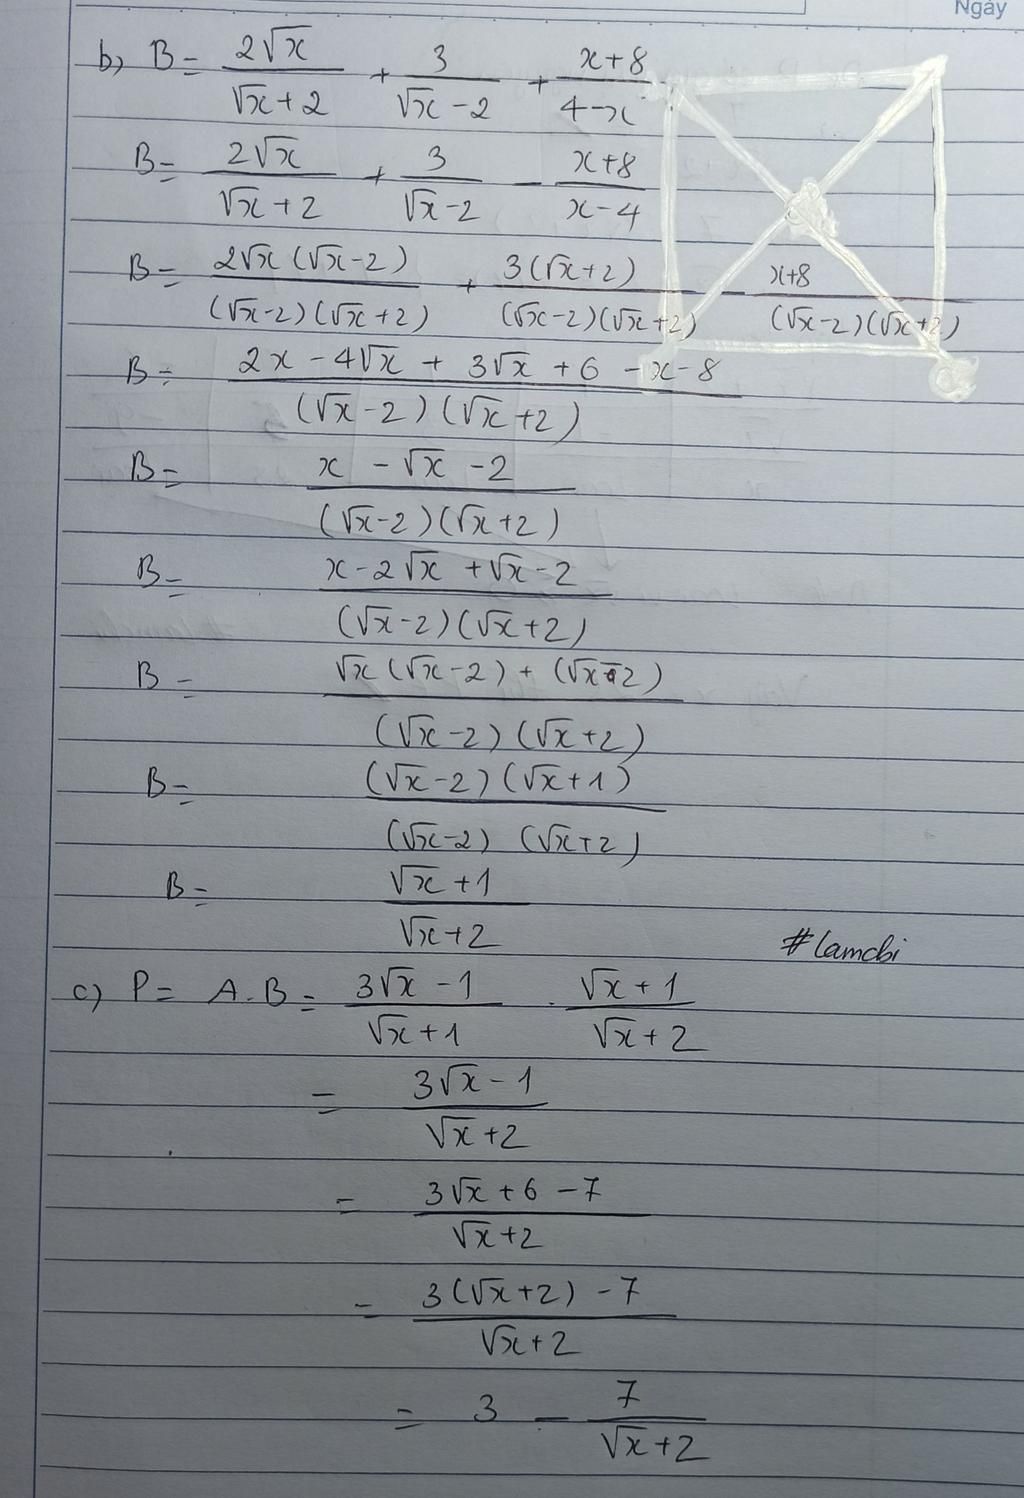 Ngày
b) B = 2√x / (√x + 2) + 3 / (√x - 2) + (x+8) / (4-x)
B = 2√x / (√x + 2) + 3 / (√x - 2) - (x+8) / (x-4)
B = 2√x (√x-2) / (√x-2)(√x+2) + 3(√x+2) / (√x-2)(√x+2) - (x+8) / (√x-2)(√x+2)
B = (2x - 4√x + 3√x + 6 - x - 8) / (√x-2)(√x+2)
B = (x - √x - 2) / (√x-2)(√x+2)
B = (x - 2√x + √x - 2) / (√x-2)(√x+2)
B = (√x (√x-2) + (√x-2)) / (√x-2)(√x+2)
B = (√x-2)(√x+1) / (√x-2)(√x+2)
B = (√x+1) / (√x+2)
#lamchi
c) P = A.B = (3√x - 1) / (√x + 1) . (√x + 1) / (√x + 2)
= (3√x - 1) / (√x + 2)
= (3√x + 6 - 7) / (√x + 2)
= (3(√x+2) - 7) / (√x + 2)
= 3 - 7 / (√x + 2)